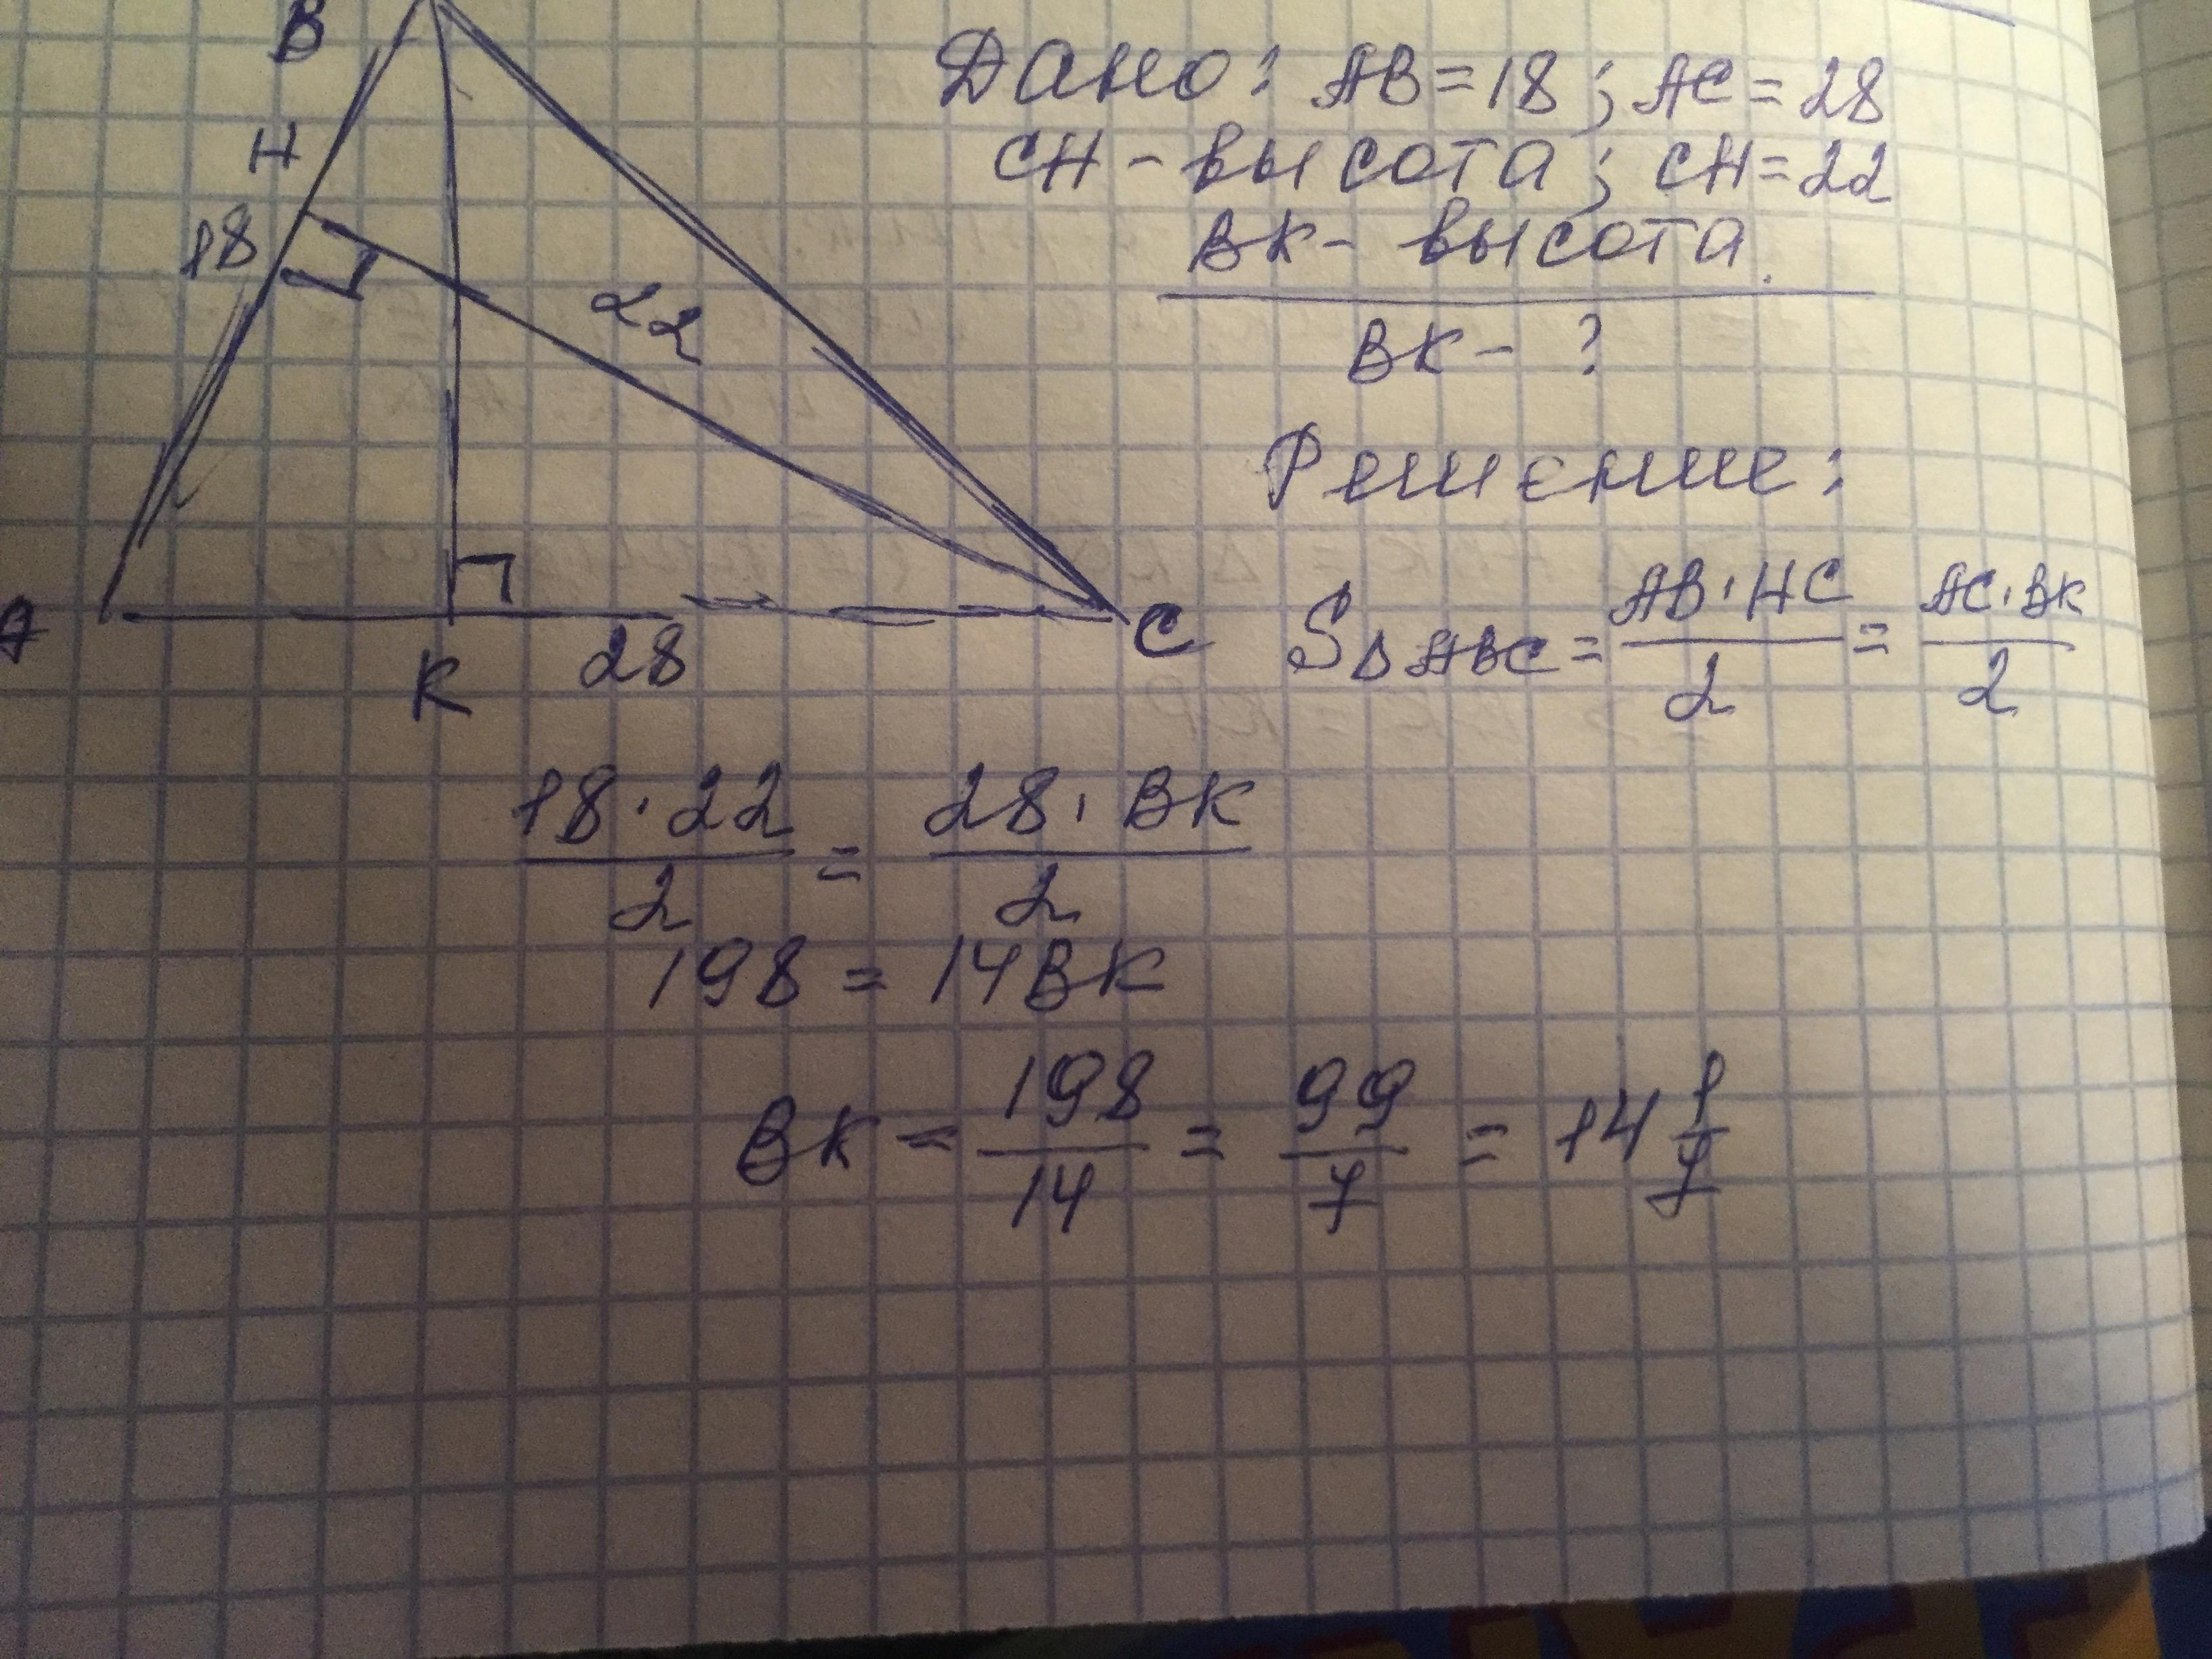 B
H
18
22
A
K
28
C
Дано: AB = 18; AC = 28
CH – высота; CH = 22
BK – высота.
BK – ?
Решение:
S△ABC = AB · HC / 2 = AC · BK / 2
18 · 22 / 2 = 28 · BK / 2
198 = 14BK
BK = 198/14 = 99/7 = 14 1/7